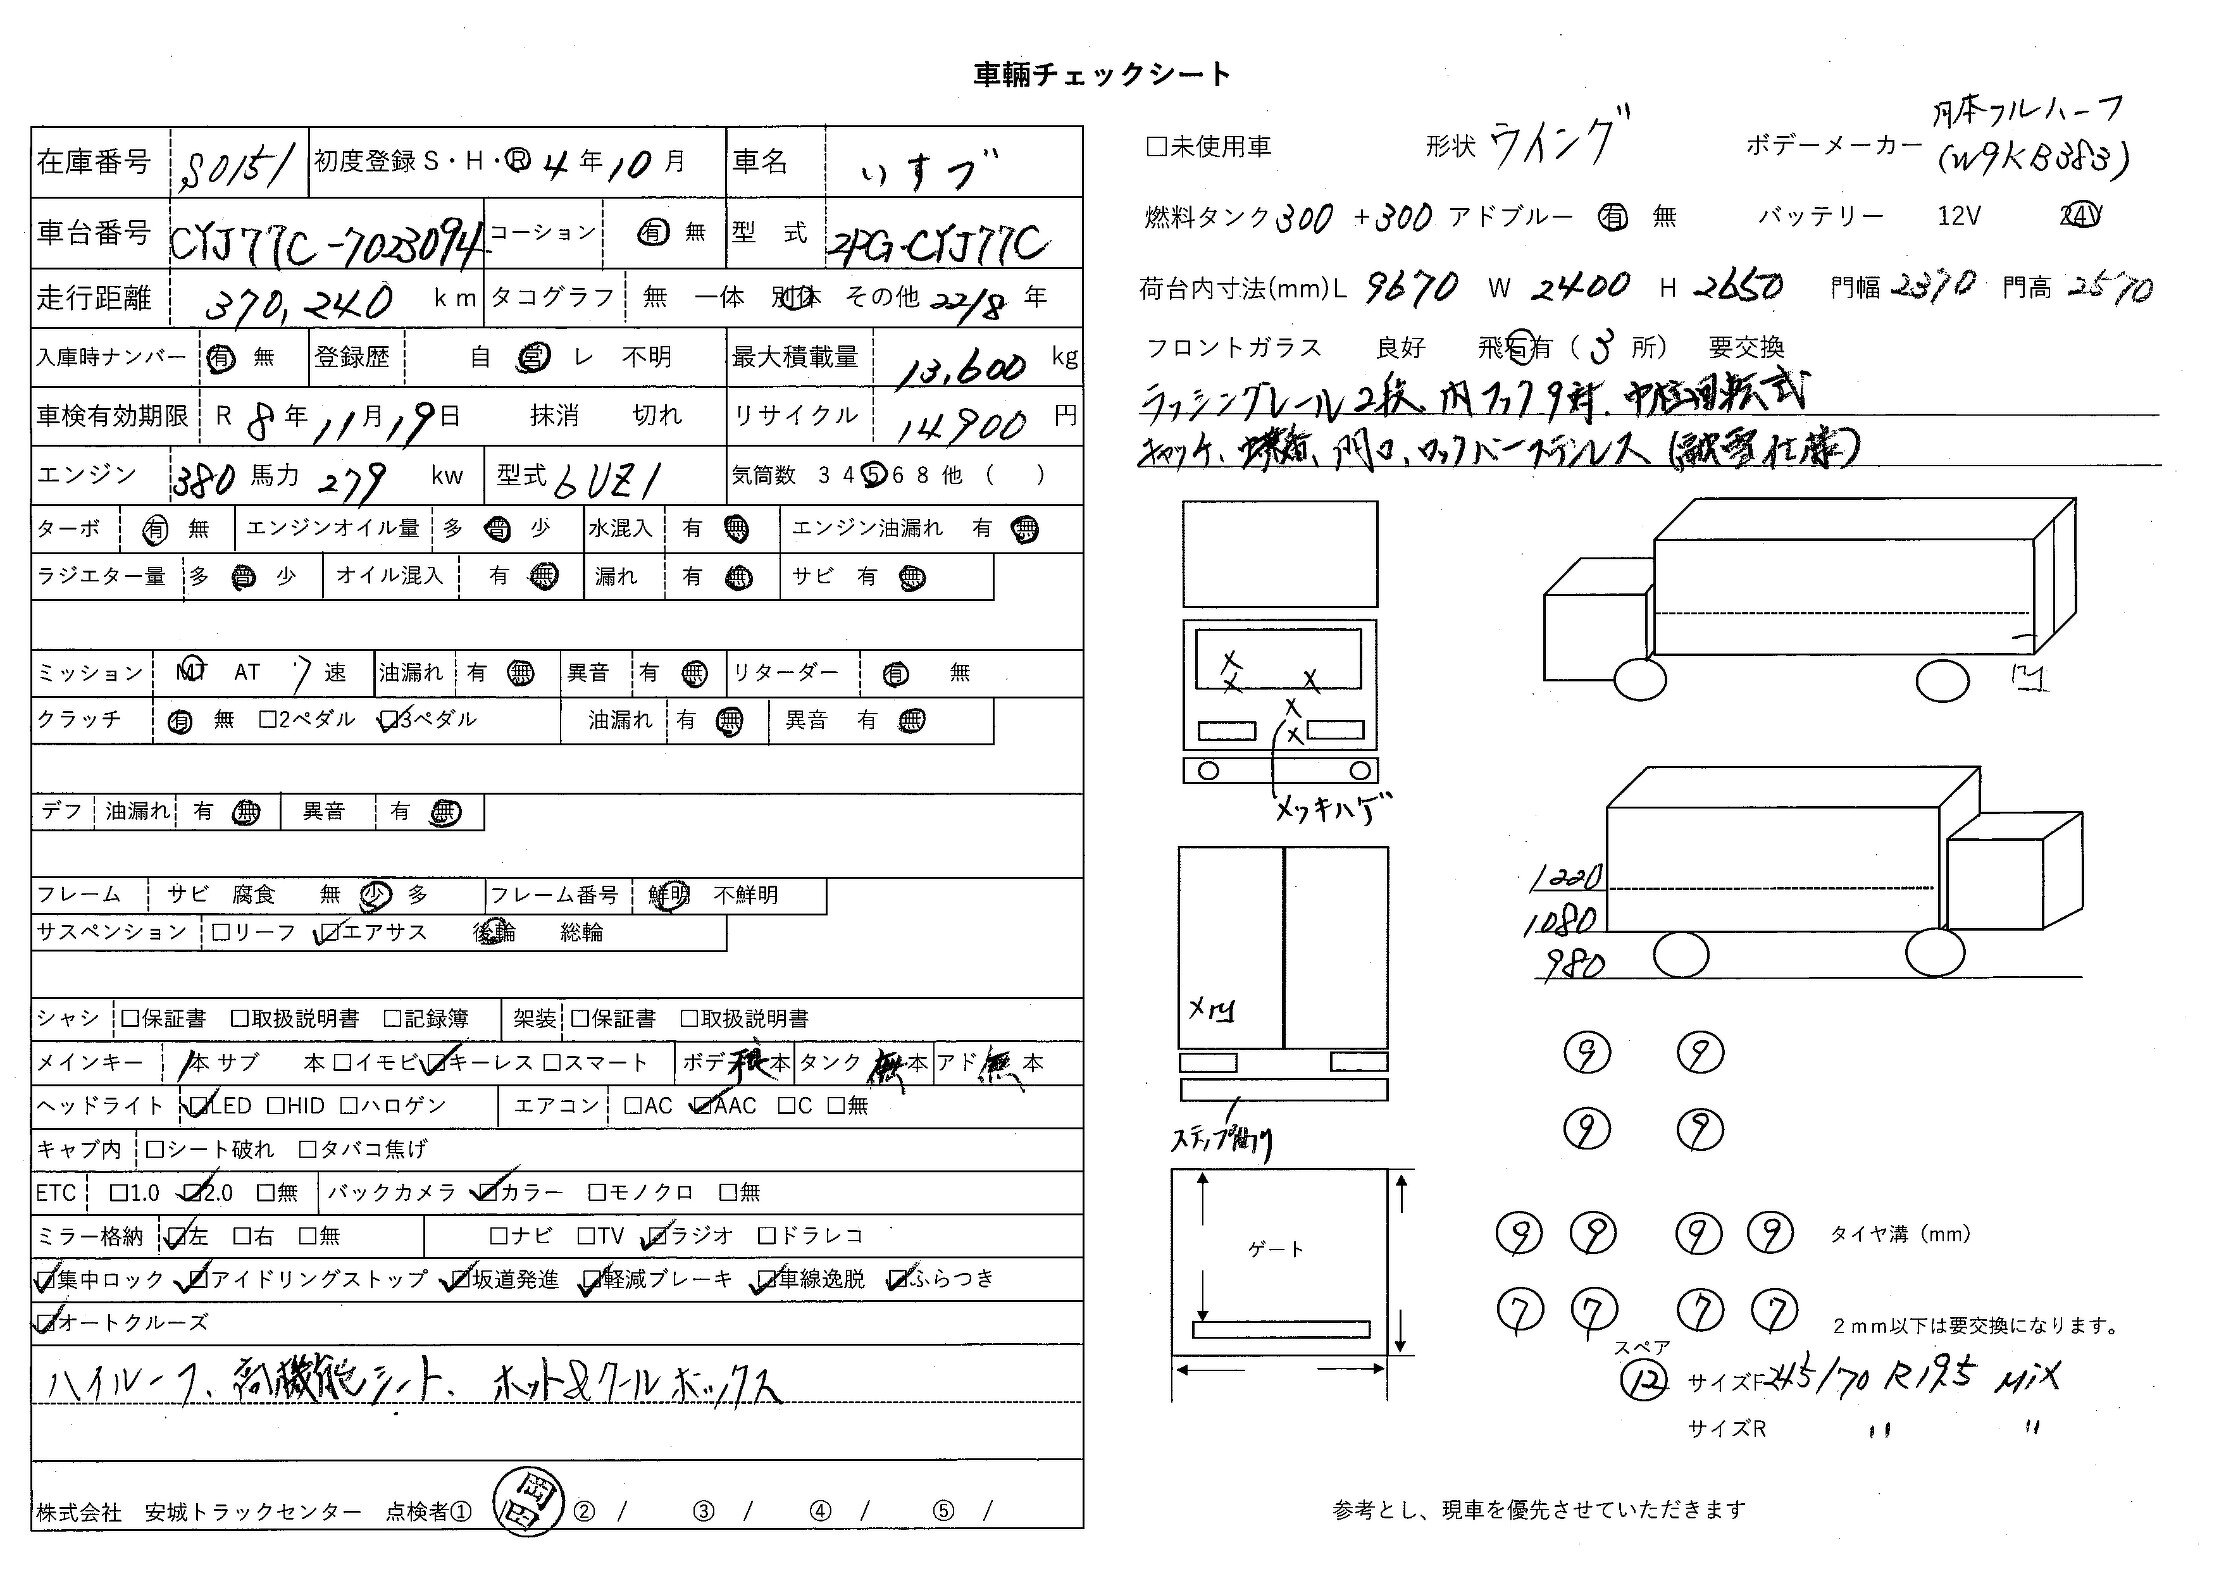 車輛チェックシート
在庫番号 S0151 初度登録 S・H・R 4年10月 車名 いすゞ
車台番号 CYJ77C-7023094 コーション 有 無 型 式 2PG-CYJ77C
走行距離 370,240 km タコグラフ 無 一体 別体 その他 22/8 年
入庫時ナンバー 有 無 登録歴 自 営 レ 不明 最大積載量 13,600 kg
車検有効期限 R 8年11月19日 抹消 切れ リサイクル 14900 円
エンジン 380 馬力 279 kw 型式 6UZ1 気筒数 3 4 5 6 8 他 ( )
ターボ 有 無 エンジンオイル量 多 普 少 水混入 有 無 エンジン油漏れ 有 無
ラジエター量 多 普 少 オイル混入 有 無 漏れ 有 無 サビ 有 無
ミッション MT AT 7 速 油漏れ 有 無 異音 有 無 リターダー 有 無
クラッチ 有 無 □2ペダル ☑3ペダル 油漏れ 有 無 異音 有 無
デフ 油漏れ 有 無 異音 有 無
フレーム サビ 腐食 無 少 多 フレーム番号 鮮明 不鮮明
サスペンション □リーフ ☑エアサス 後輪 総輪
シャシ □保証書 □取扱説明書 □記録簿 架装 □保証書 □取扱説明書
メインキー 1本 サブ 本 □イモビ ☑キーレス □スマート ボデ 本 タンク 無本 アド 無 本
ヘッドライト ☑LED □HID □ハロゲン エアコン □AC ☑AAC □C □無
キャブ内 □シート破れ □タバコ焦げ
ETC □1.0 ☑2.0 □無 バックカメラ ☑カラー □モノクロ □無
ミラー格納 ☑左 □右 □無 □ナビ □TV ☑ラジオ □ドラレコ
☑集中ロック ☑アイドリングストップ ☑坂道発進 ☑軽減ブレーキ ☑車線逸脱 ☑ふらつき
☑オートクルーズ
ハイルーフ、高機能シート、ホット&クールボックス
株式会社 安城トラックセンター 点検者① 岡田 ② / ③ / ④ / ⑤ /
□未使用車 形状 ウイング ボデーメーカー 日本フルハーフ
(W9KB383)
燃料タンク 300 +300 アドブルー 有 無 バッテリー 12V 24V
荷台内寸法(mm) L 9670 W 2400 H 2650 門幅 2370 門高 2570
フロントガラス 良好 飛石有 ( 3 所) 要交換
ラッシングレール2段、内フック9対、中柱回転式
キャッチ、蝶番、門口、ロックバーステンレス(融雪仕様)
X
X X
X
X
メッキハゲ
凹
1220
1080
980
X凹
ステップ曲り
ゲート
9 9
9 9
9 9 9 9 タイヤ溝 (mm)
7 7 7 7 2mm以下は要交換になります。
スペア
12 サイズF 245/70 R19.5 MIX
サイズR 〃 〃
参考とし、現車を優先させていただきます